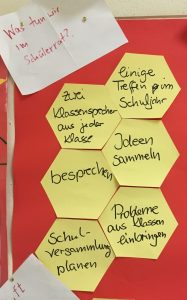 Was tun wir
im
Schülerrat?
einige
Treffen im
Schuljahr
Zwei
Klassensprecher
aus jeder
Klasse
Ideen
sammeln
besprechen
Probleme
aus Klassen
einbringen
Schul-
versammlung
planen
ft